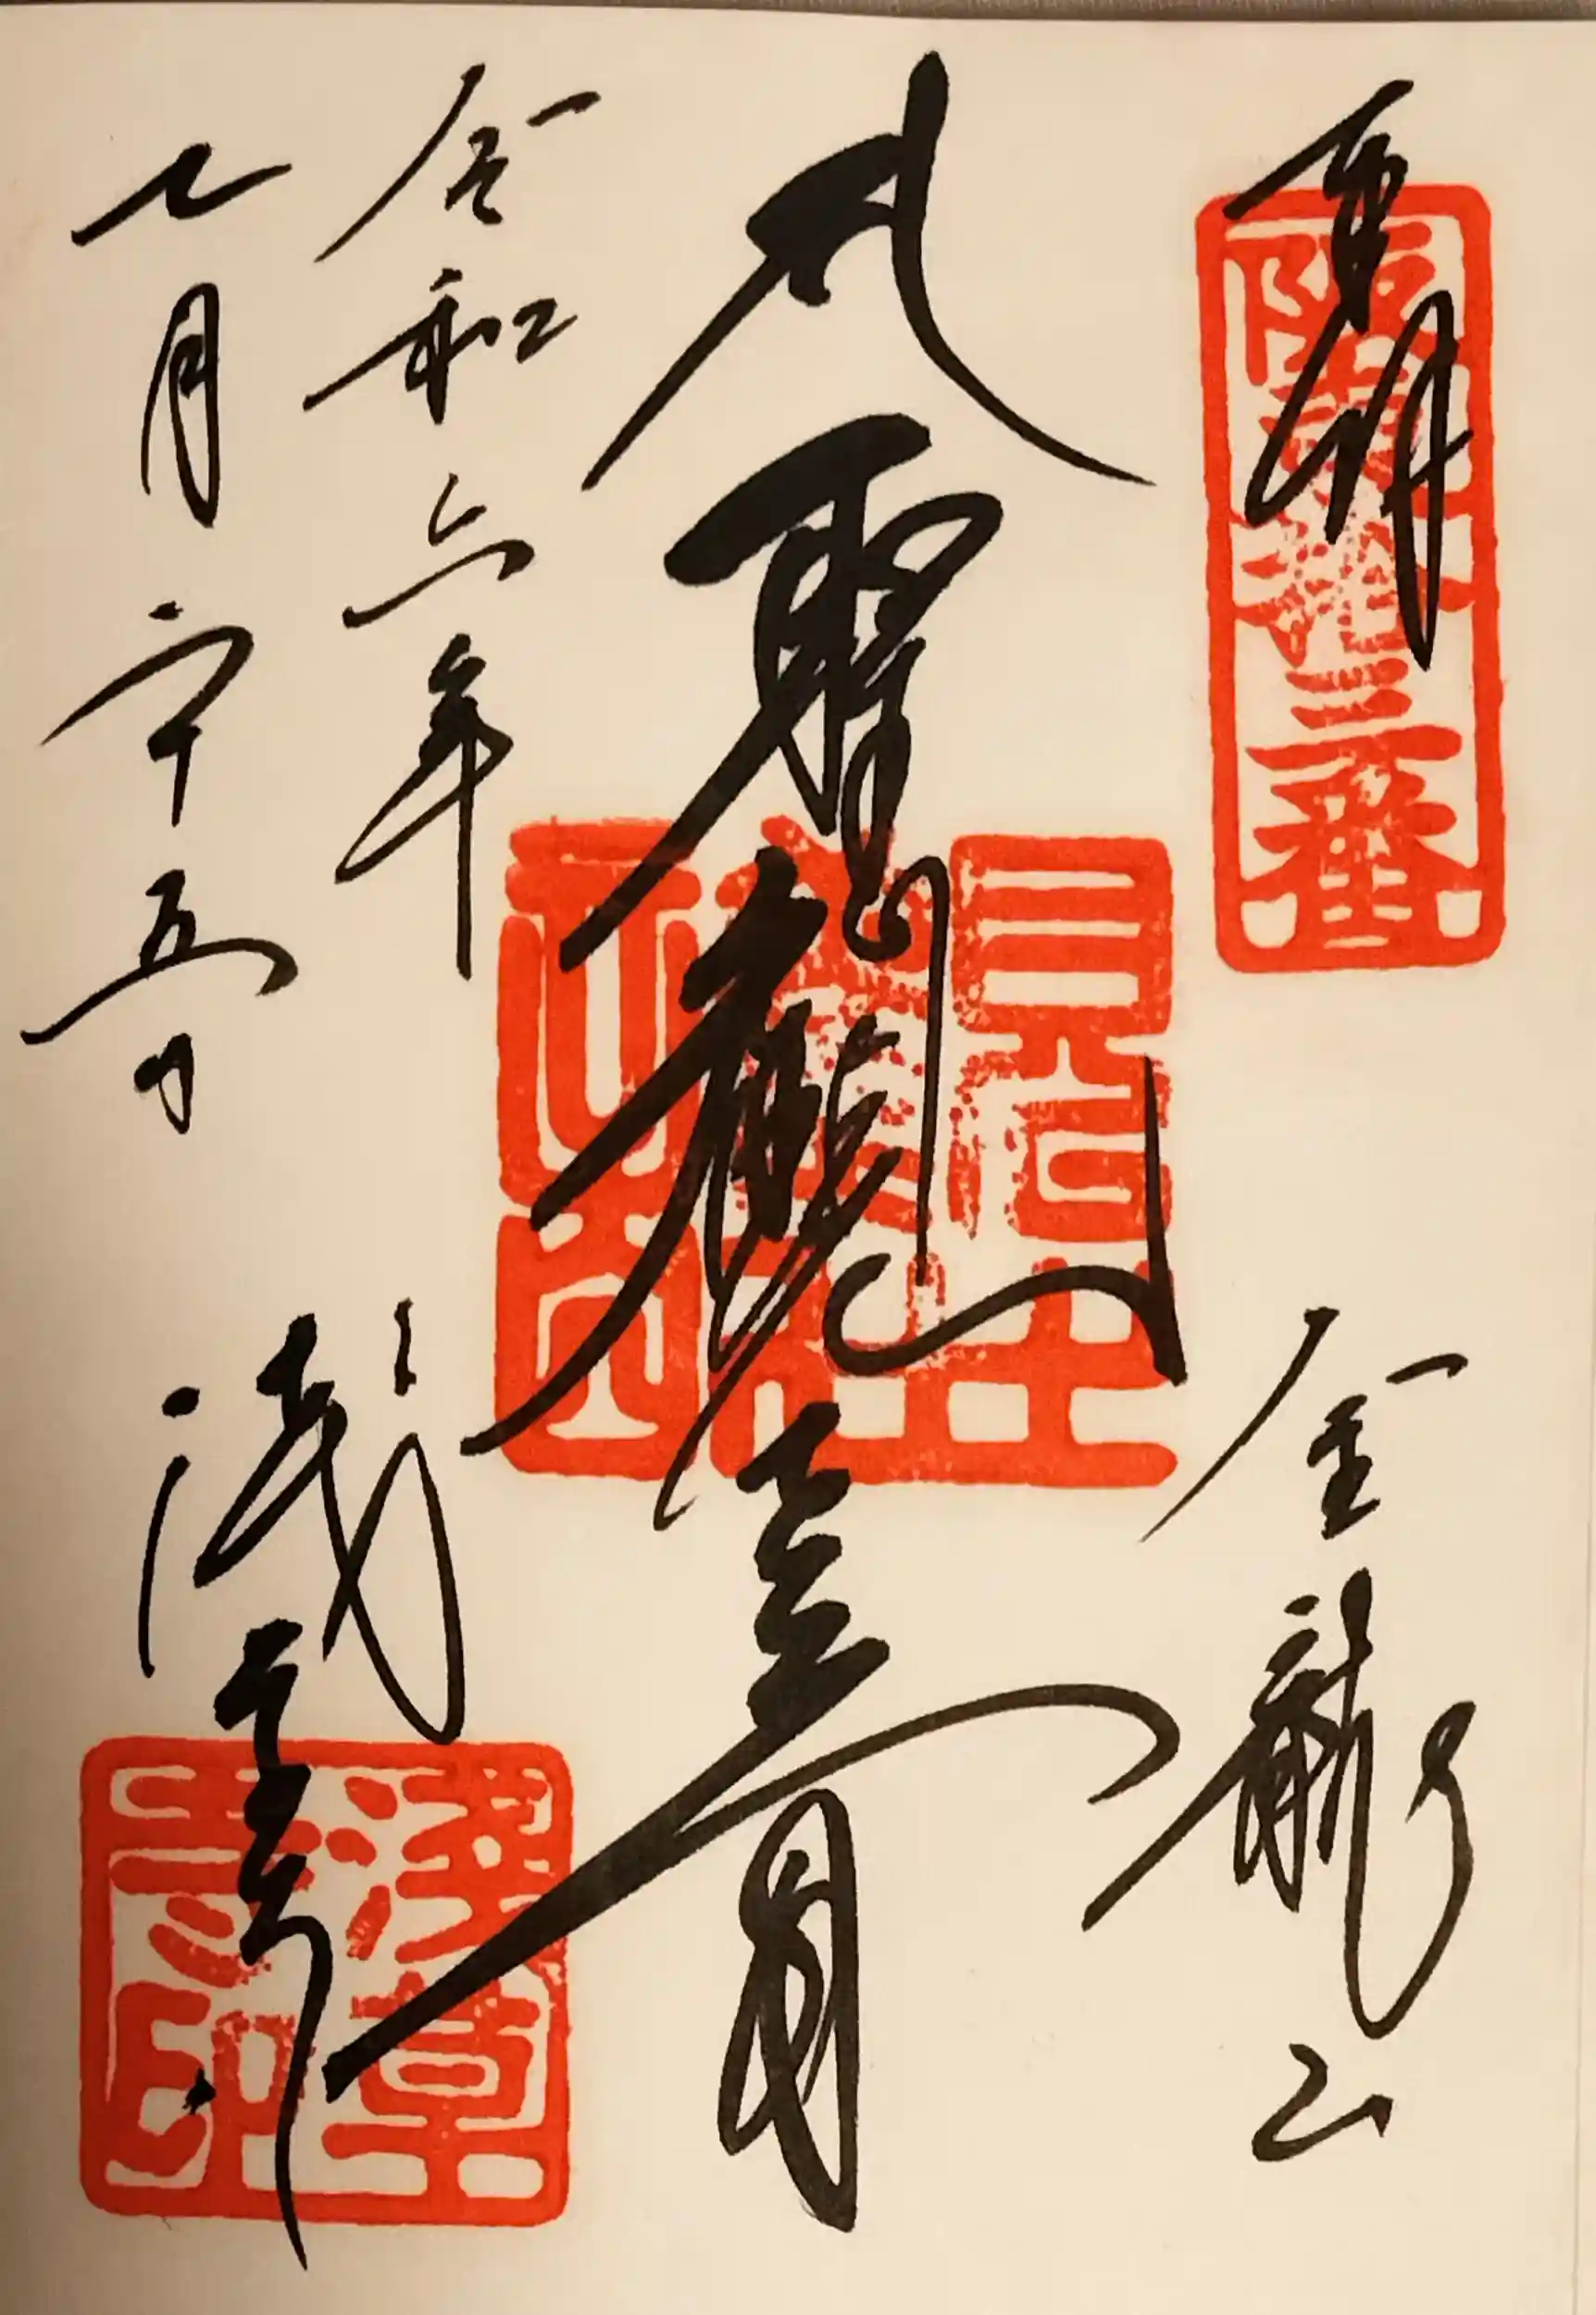 奉拝
坂東第十三番
金龍山
聖觀音
令和六年
七月二十五日
浅草寺
淺草寺印